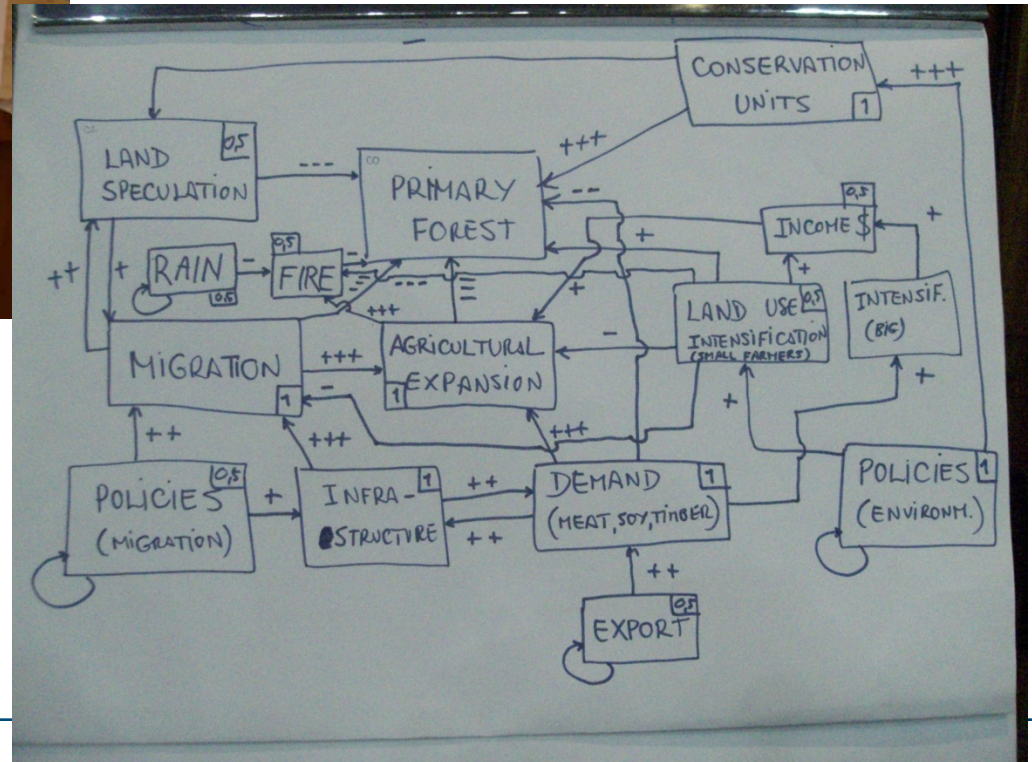 −
CONSERVATION
UNITS
1
+++
LAND
SPECULATION
0,5
---
PRIMARY
FOREST
∞
+++
--
INCOME $
0,5
+
RAIN
0,5
-
FIRE
0,5
++
+
+++
---
+
+
LAND USE
INTENSIFICATION
(SMALL FARMERS)
0,5
+
INTENSIF.
(BIG)
MIGRATION
1
+++
-
AGRICULTURAL
EXPANSION
1
-
+
+
++
+++
+++
POLICIES
(MIGRATION)
0,5
+
INFRA-
STRUCTURE
1
++
++
DEMAND
(MEAT, SOY, TIMBER)
1
POLICIES
(ENVIRONM.)
1
++
EXPORT
0,5